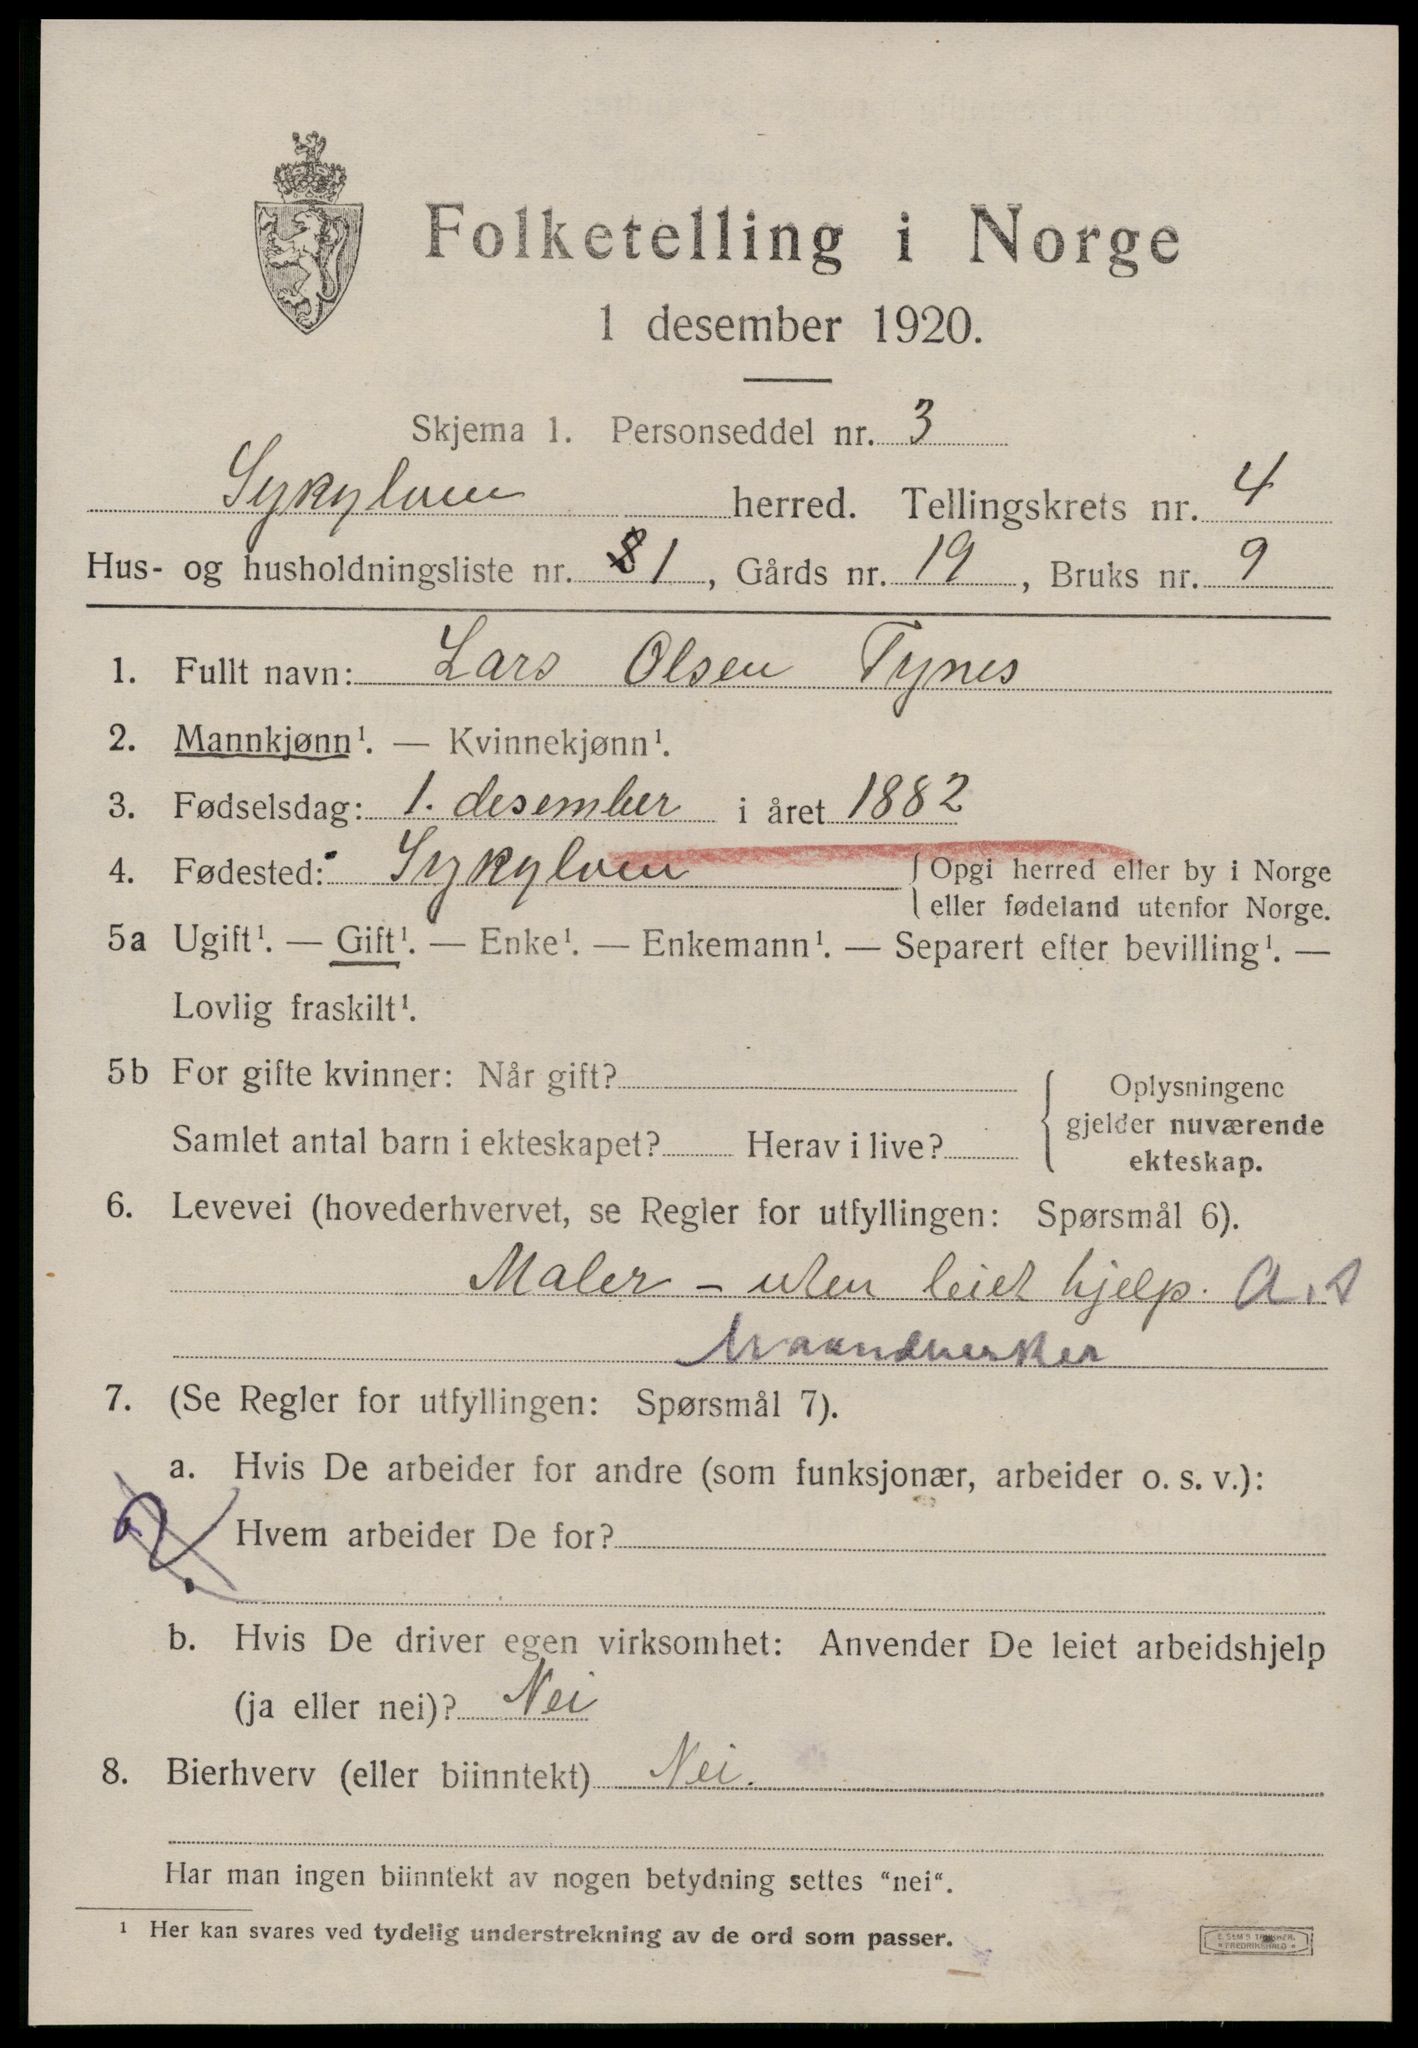 Folketelling i Norge
1 desember 1920.
Skjema 1. Personseddel nr. 3
Sykylven herred. Tellingskrets nr. 4
Hus- og husholdningsliste nr. 81, Gårds nr. 19, Bruks nr. 9
1. Fullt navn: Lars Olsen Tynes
2. Mannkjønn¹. — Kvinnekjønn¹.
3. Fødselsdag: 1. desember i året 1882
4. Fødested: Sykylven { Opgi herred eller by i Norge
eller fødeland utenfor Norge.
5a Ugift¹. — Gift¹. — Enke¹. — Enkemann¹. — Separert efter bevilling¹. —
Lovlig fraskilt¹.
5b For gifte kvinner: Når gift?
Samlet antal barn i ekteskapet? Herav i live?
Oplysningene
gjelder nuværende
ekteskap.
6. Levevei (hovederhvervet, se Regler for utfyllingen: Spørsmål 6).
Maler – uten leiet hjelp.
7. (Se Regler for utfyllingen: Spørsmål 7).
a. Hvis De arbeider for andre (som funksjonær, arbeider o. s. v.):
Hvem arbeider De for?
b. Hvis De driver egen virksomhet: Anvender De leiet arbeidshjelp
(ja eller nei)? Nei
8. Bierhverv (eller biinntekt) Nei.
Har man ingen biinntekt av nogen betydning settes "nei".
¹ Her kan svares ved tydelig understrekning av de ord som passer.